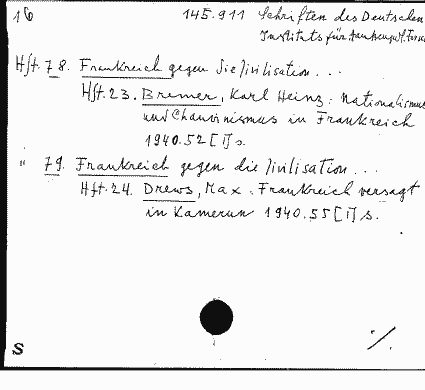 16 145.911 Schriften des Deutschen
Instituts für Aussenpol. Forsch
Hft. 78. Frankreich gegen die Zivilisation...
Hft. 23. Bremer, Karl Heinz: Nationalismus
und Chauvinismus in Frankreich
1940. 52 [1] s.
" 79. Frankreich gegen die Zivilisation...
Hft. 24. Drews, Max: Frankreich versagt
in Kamerun 1940. 55 [1] s.
S ·/.